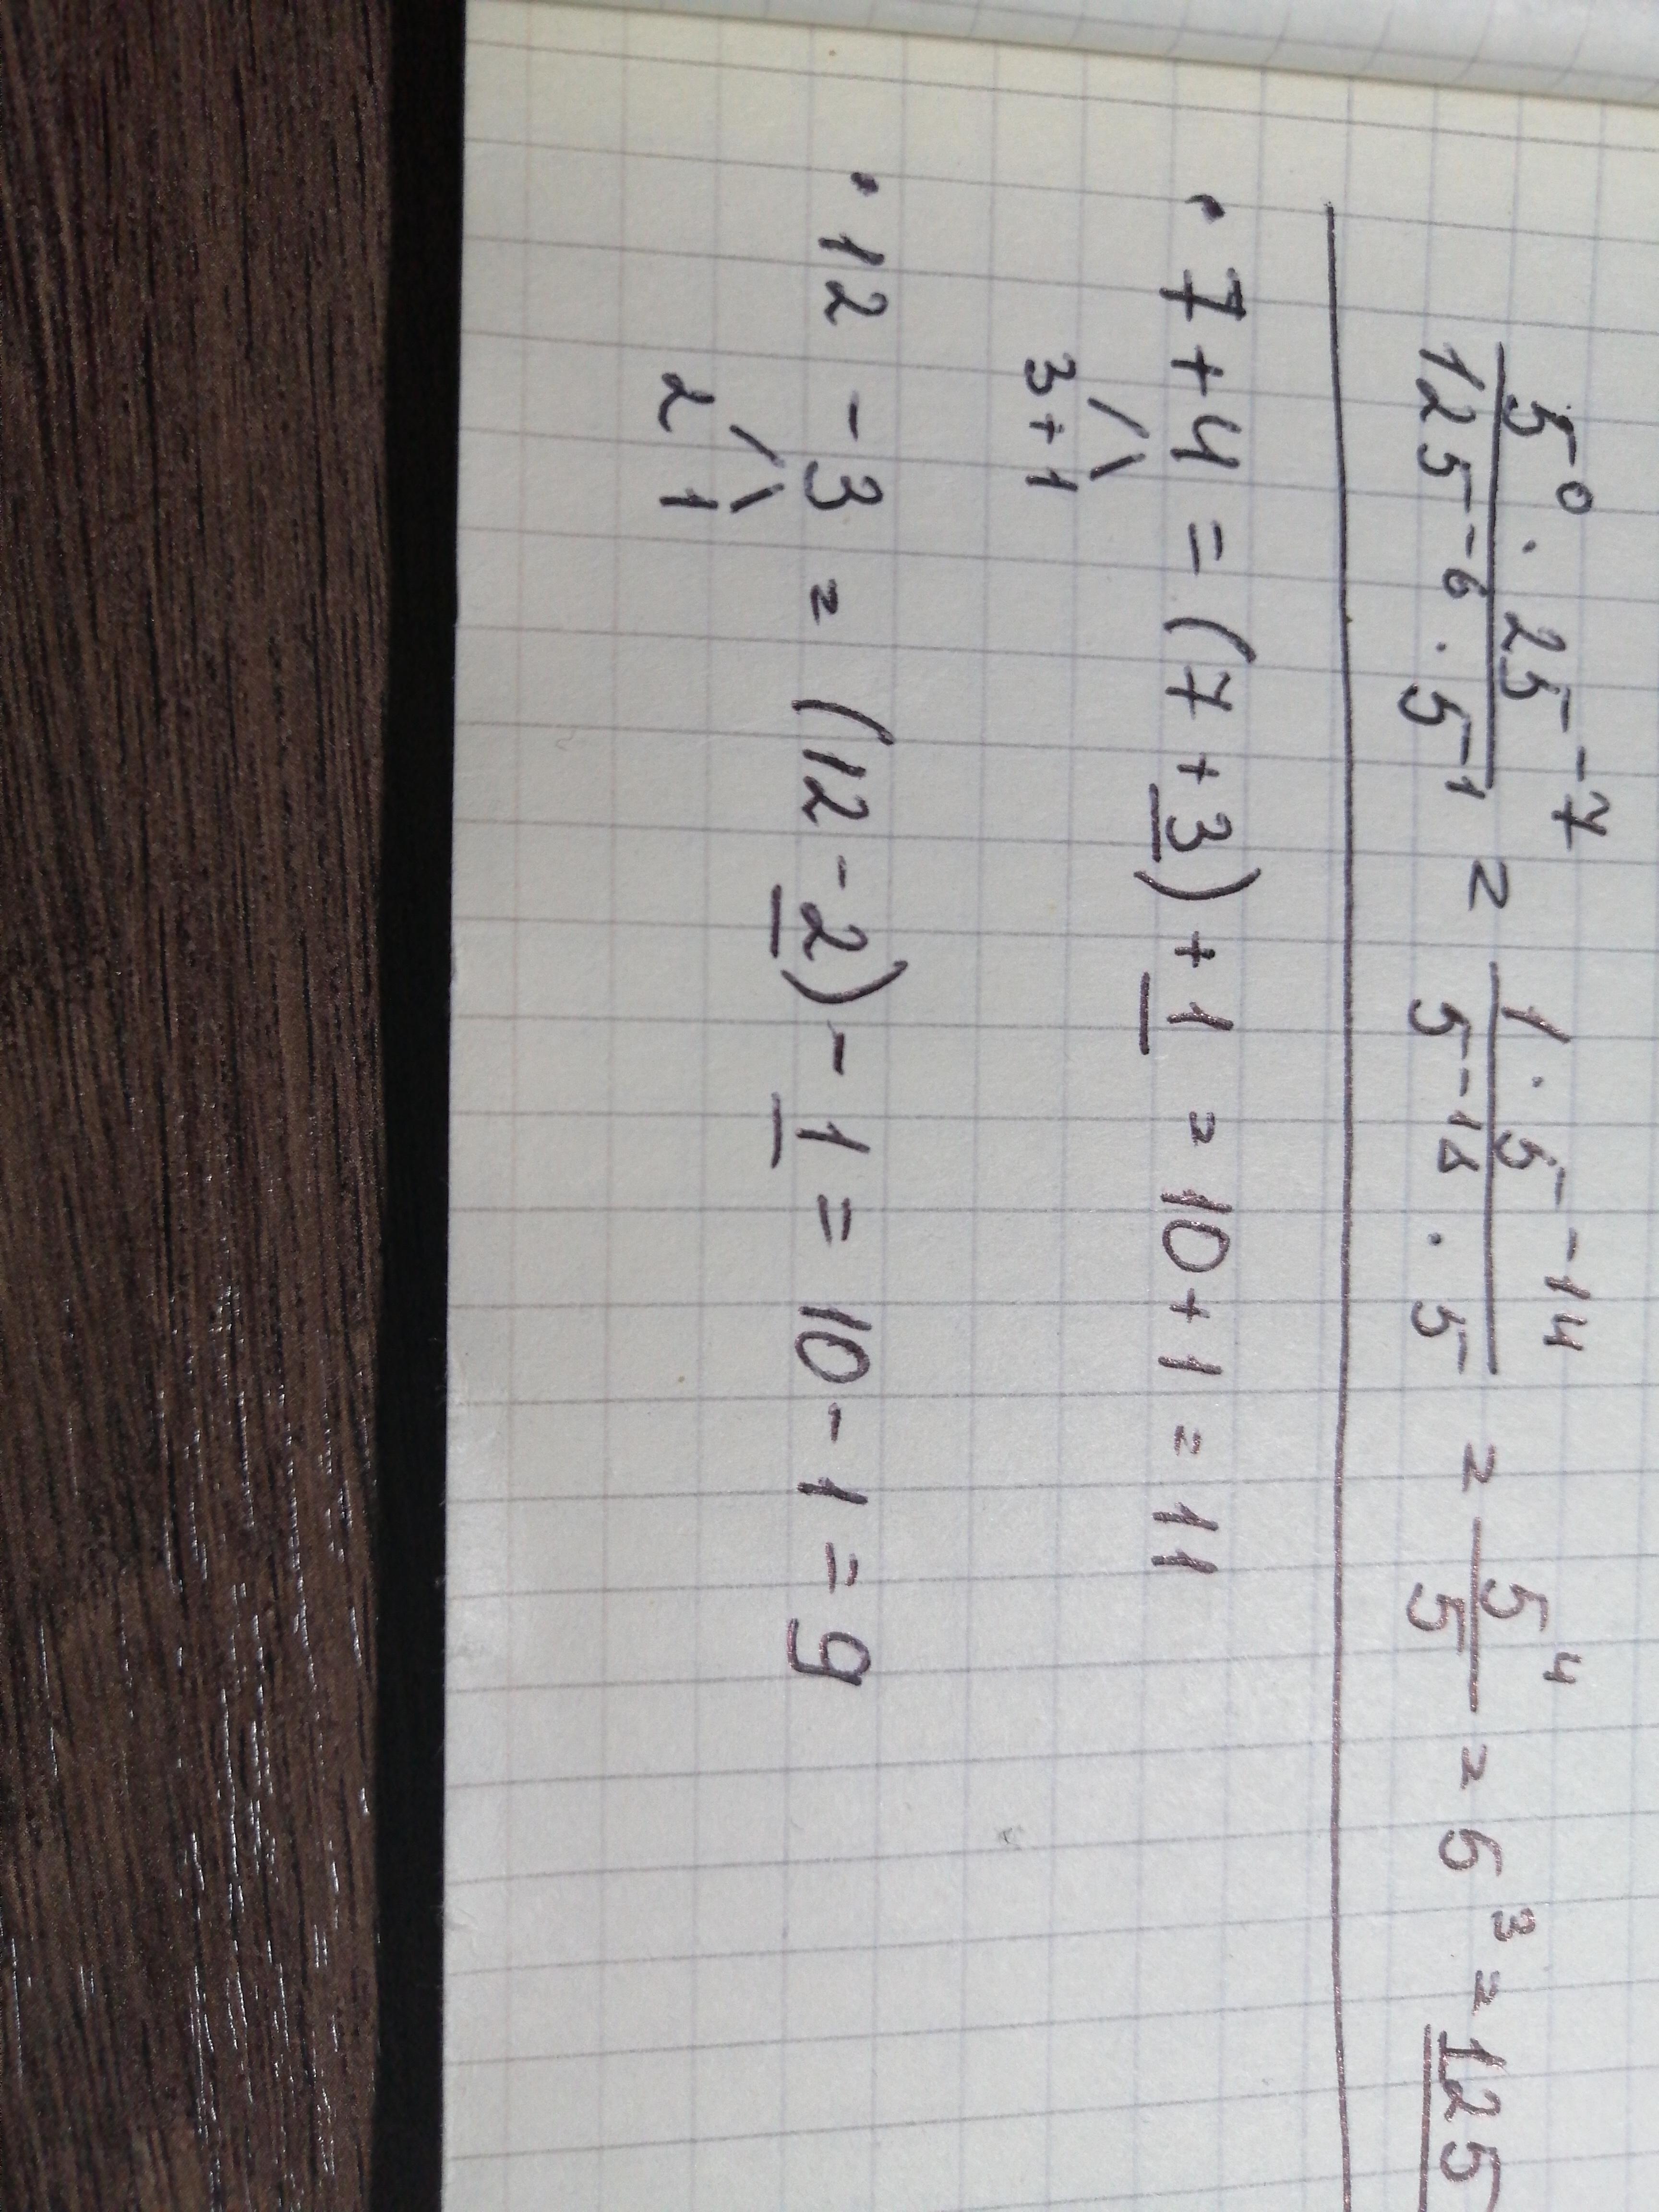 5⁰ · 25⁻⁷ / 125⁻⁶ · 5⁻¹ = 1 · 5⁻¹⁴ / 5⁻¹⁸ · 5 = 5⁴ / 5 = 5³ = 125
• 7 + 4 = (7 + 3) + 1 = 10 + 1 = 11
3 + 1
• 12 - 3 = (12 - 2) - 1 = 10 - 1 = 9
2 1